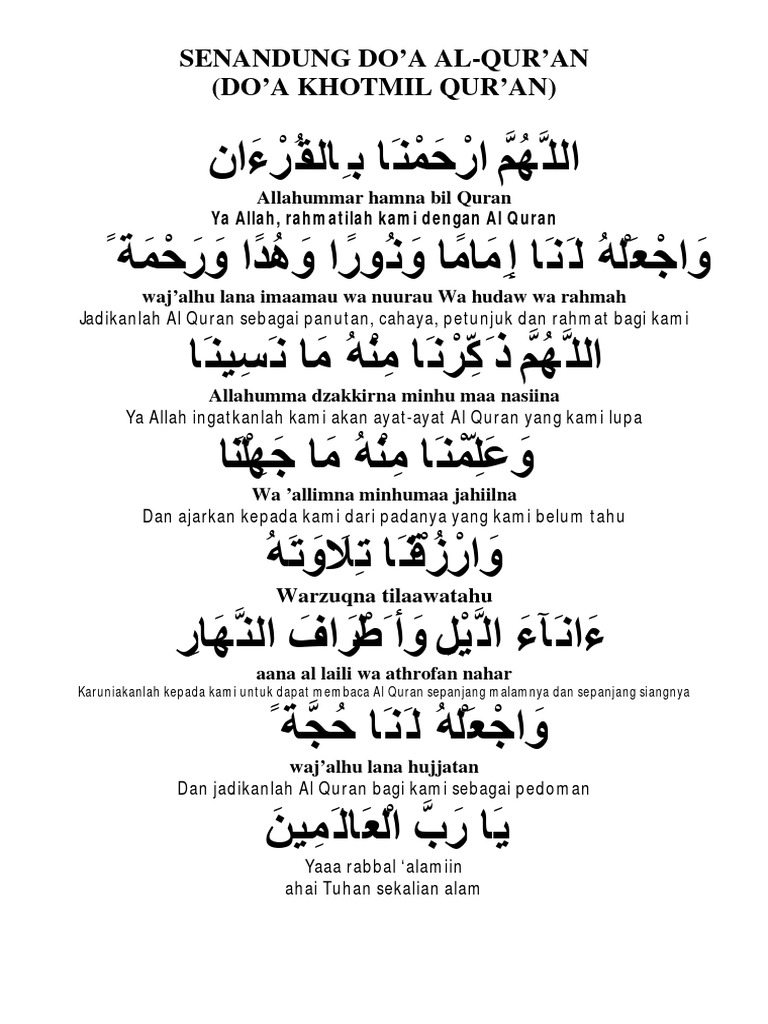 SENANDUNG DO’A AL-QUR’AN
(DO’A KHOTMIL QUR’AN)
اللَّهُمَّ ارْحَمْنَا بِالقُرْءَان
Allahummar hamna bil Quran
Ya Allah, rahmatilah kami dengan Al Quran
وَاجْعَلْهُ لَنَا إِمَامًا وَنُورًا وَهُدًا وَرَحْمَةً
waj’alhu lana imaamau wa nuurau Wa hudaw wa rahmah
Jadikanlah Al Quran sebagai panutan, cahaya, petunjuk dan rahmat bagi kami
اللَّهُمَّ ذَكِّرْنَا مِنْهُ مَا نَسِينَا
Allahumma dzakkirna minhu maa nasiina
Ya Allah ingatkanlah kami akan ayat-ayat Al Quran yang kami lupa
وَعَلِّمْنَا مِنْهُ مَا جَهِلْنَا
Wa ’allimna minhumaa jahiilna
Dan ajarkan kepada kami dari padanya yang kami belum tahu
وَارْزُقْنَا تِلَاوَتَهُ
Warzuqna tilaawatahu
ءَانَآءَ الَّيْلِ وَأَطْرَافَ النَّهَارِ
aana al laili wa athrofan nahar
Karuniakanlah kepada kami untuk dapat membaca Al Quran sepanjang malamnya dan sepanjang siangnya
وَاجْعَلْهُ لَنَا حُجَّةً
waj’alhu lana hujjatan
Dan jadikanlah Al Quran bagi kami sebagai pedoman
يَا رَبَّ الْعَالَمِينَ
Yaaa rabbal ‘alamiin
ahai Tuhan sekalian alam